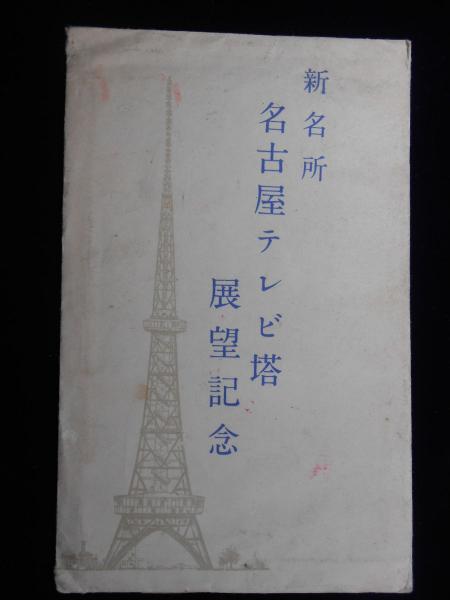 新名所
名古屋テレビ塔
展望記念